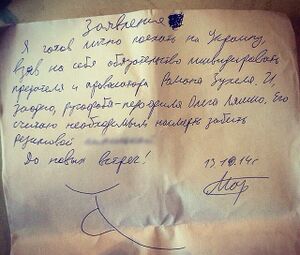 Заявление
Я готов лично поехать на Украину,
взяв на себя обязательство ликвидировать
предателя и провокатора Романа Зухеля. И,
заодно, русофоба-педераста Олега Ляшко. Его
считаю необходимым насмерть забить
резиновой
До новых встреч!
13.10.14 г.